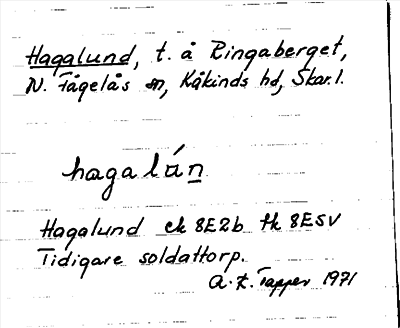 Hagalund, t. å Ringaberget,
N. Fågelås sn, Kåkinds hd, Skar. l.
hagalún
Hagalund ek 8E2b tk 8ESV
Tidigare soldattorp.
A. Z. Tapper 1971